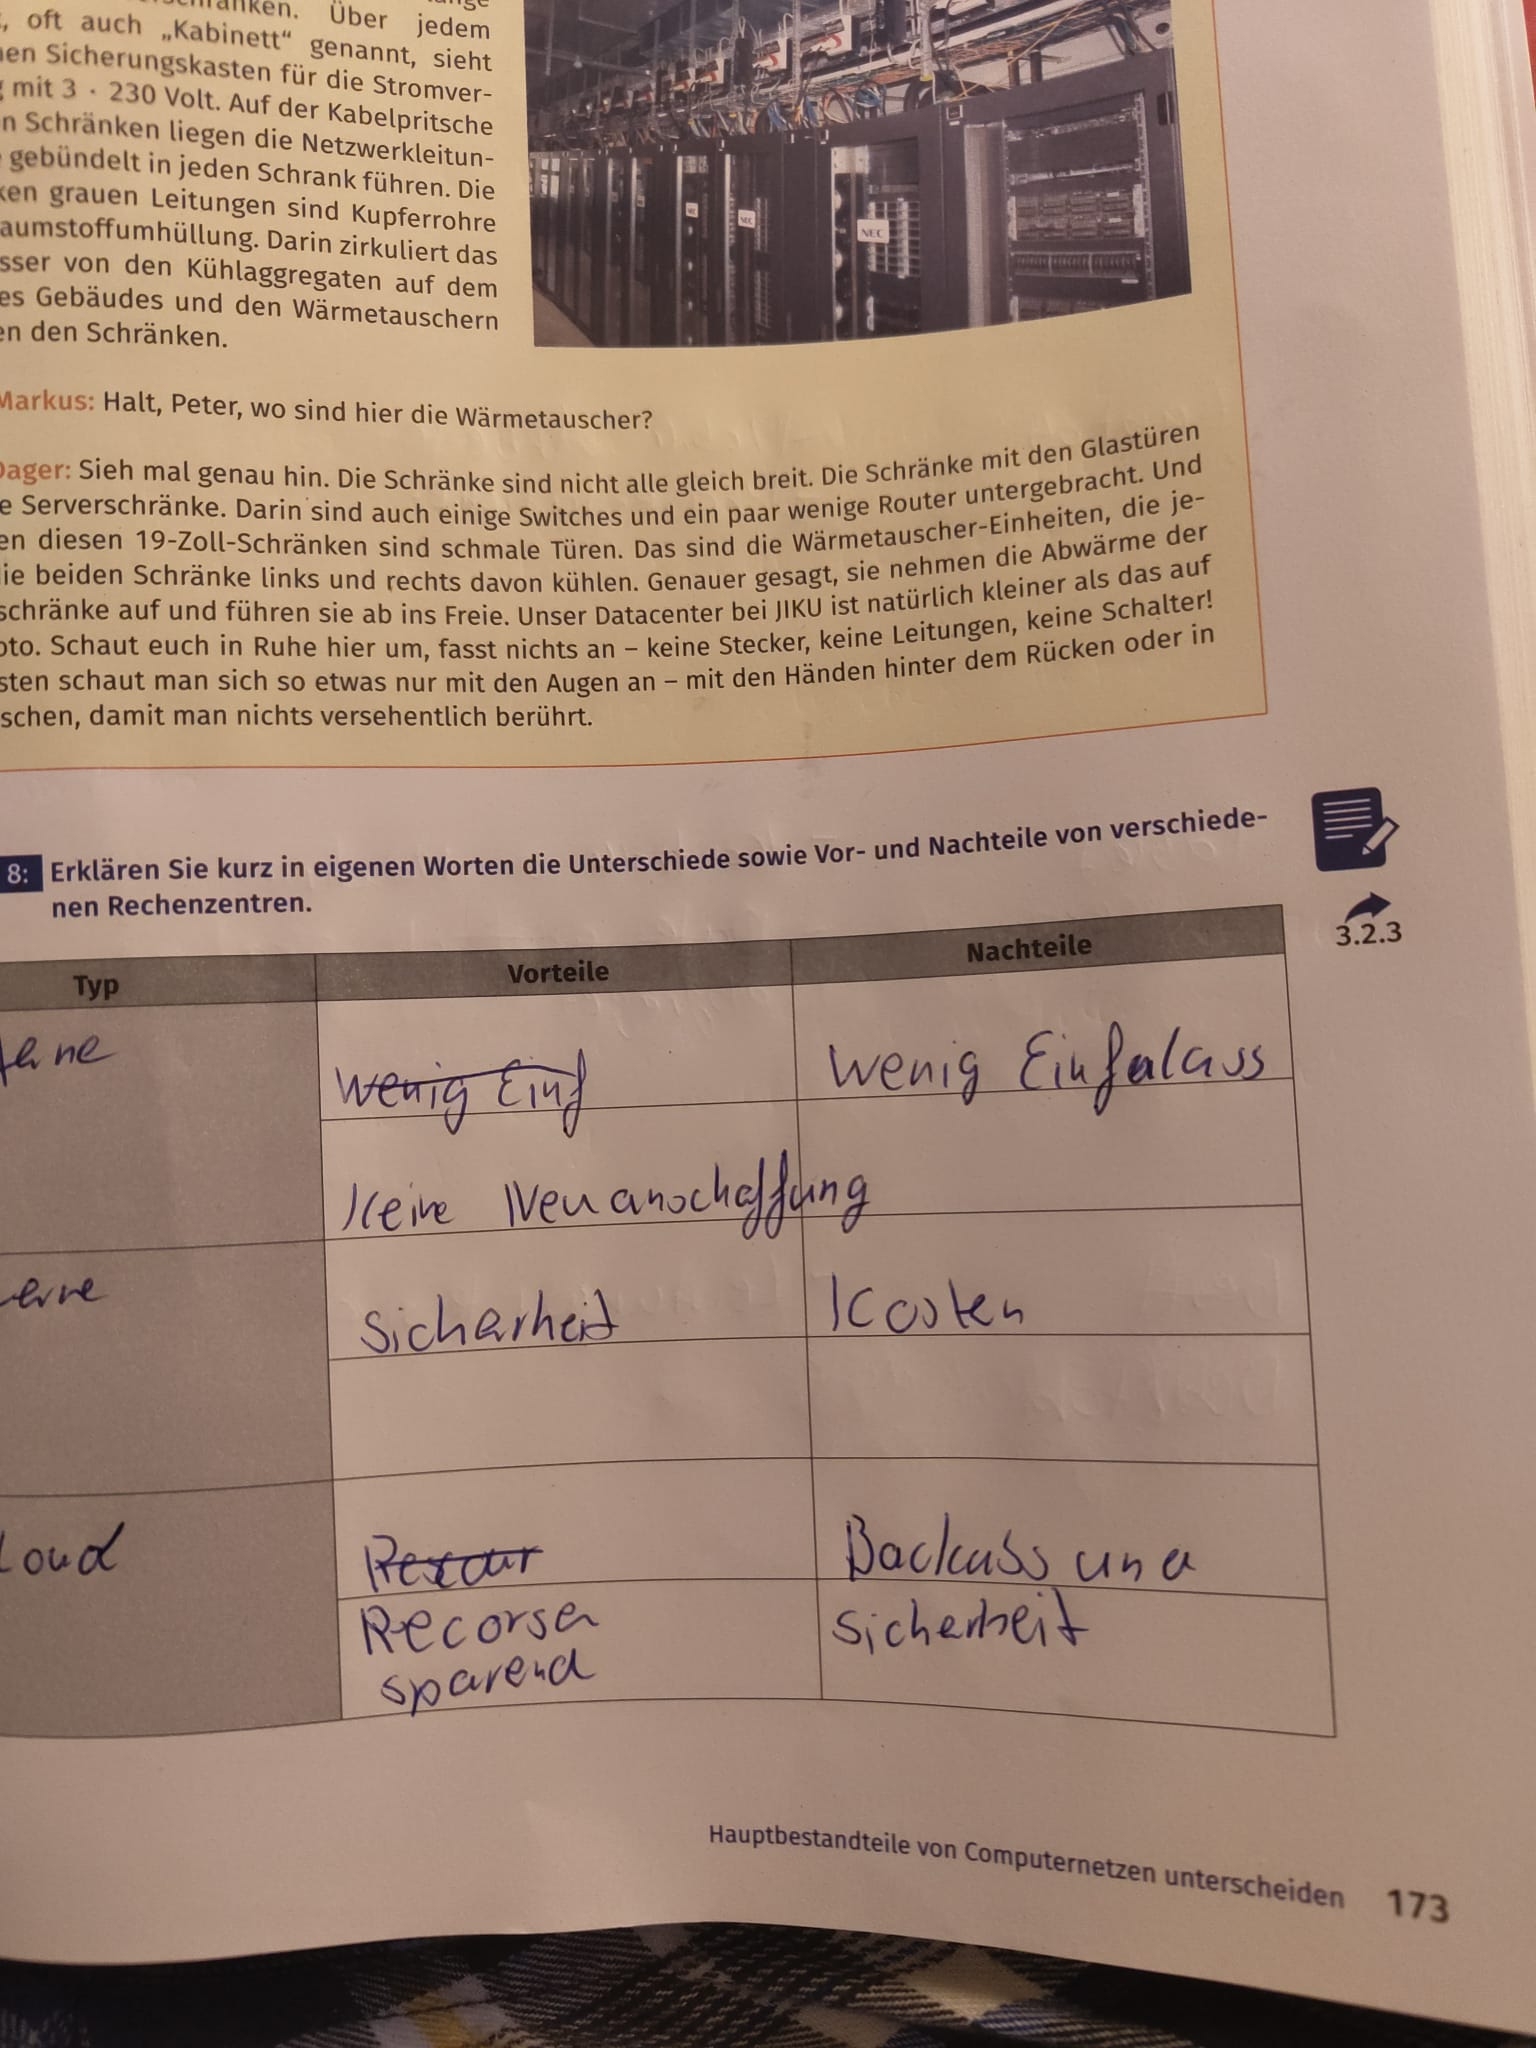 Über jedem
oft auch „Kabinett“ genannt, sieht
en Sicherungskasten für die Stromver-
mit 3 · 230 Volt. Auf der Kabelpritsche
n Schränken liegen die Netzwerkleitun-
gebündelt in jeden Schrank führen. Die
ken grauen Leitungen sind Kupferrohre
aumstoffumhüllung. Darin zirkuliert das
sser von den Kühlaggregaten auf dem
es Gebäudes und den Wärmetauschern
en den Schränken.
NEC
NEC
NEC
Markus: Halt, Peter, wo sind hier die Wärmetauscher?
Dager: Sieh mal genau hin. Die Schränke sind nicht alle gleich breit. Die Schränke mit den Glastüren
e Serverschränke. Darin sind auch einige Switches und ein paar wenige Router untergebracht. Und
en diesen 19-Zoll-Schränken sind schmale Türen. Das sind die Wärmetauscher-Einheiten, die je-
ie beiden Schränke links und rechts davon kühlen. Genauer gesagt, sie nehmen die Abwärme der
schränke auf und führen sie ab ins Freie. Unser Datacenter bei JIKU ist natürlich kleiner als das auf
oto. Schaut euch in Ruhe hier um, fasst nichts an – keine Stecker, keine Leitungen, keine Schalter!
sten schaut man sich so etwas nur mit den Augen an – mit den Händen hinter dem Rücken oder in
schen, damit man nichts versehentlich berührt.
8: Erklären Sie kurz in eigenen Worten die Unterschiede sowie Vor- und Nachteile von verschiede-
nen Rechenzentren.
3.2.3
Typ Vorteile Nachteile
erne wenig Einf wenig Einfalass
Keine Neuanschaffung
erne Sicherheit Kosten
loud Resour Backuss und
Recorsen Sicherheit
sparend
Hauptbestandteile von Computernetzen unterscheiden 173